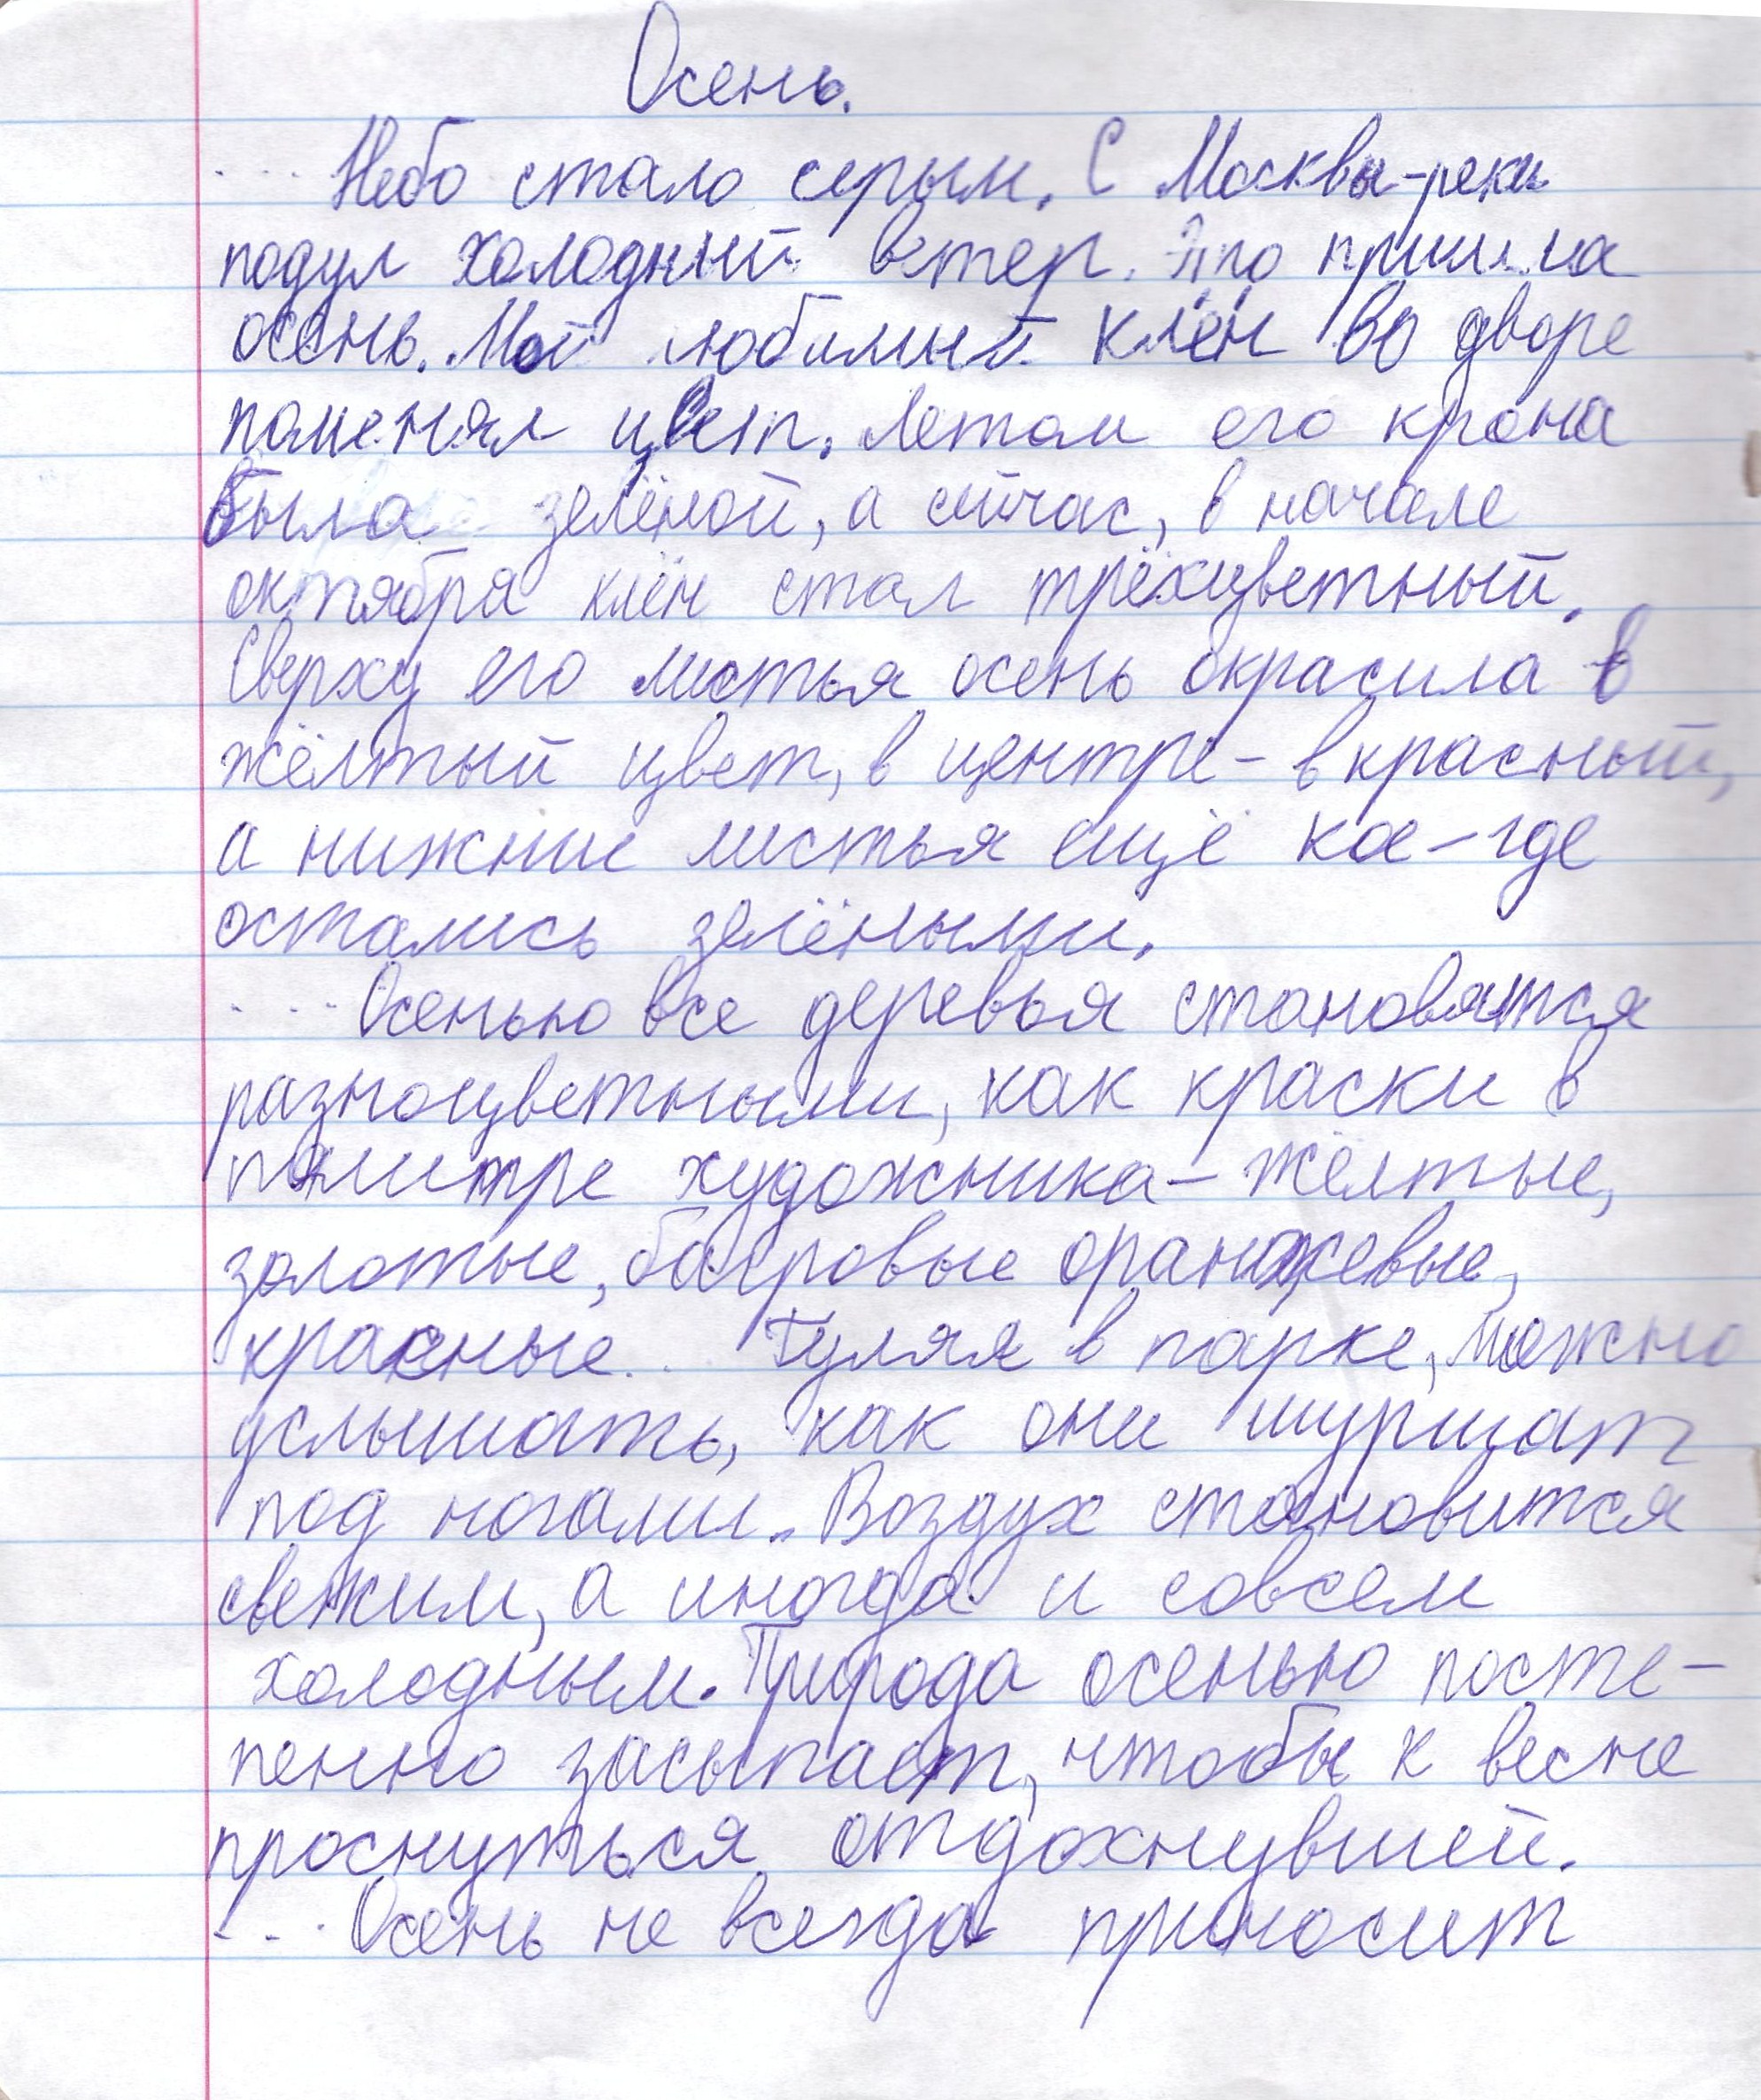 Осень.
Небо стало серым. С Москвы-реки
подул холодный ветер. Это пришла
осень. Мой любимый клён во дворе
поменял цвет. Летом его крона
была зелёной, а сейчас, в начале
октября клён стал трёхцветный.
Сверху его листья осень окрасила в
жёлтый цвет, в центре - в красный,
а нижние листья ещё кое-где
остались зелёными.
Осенью все деревья становятся
разноцветными, как краски в
палитре художника - жёлтые,
золотые, багровые оранжевые,
красные... Гуляя в парке, можно
услышать, как они шуршат
под ногами. Воздух становится
свежим, а иногда и совсем
холодным. Природа осенью посте-
пенно засыпает, чтобы к весне
проснуться отдохнувшей.
Осень не всегда приносит